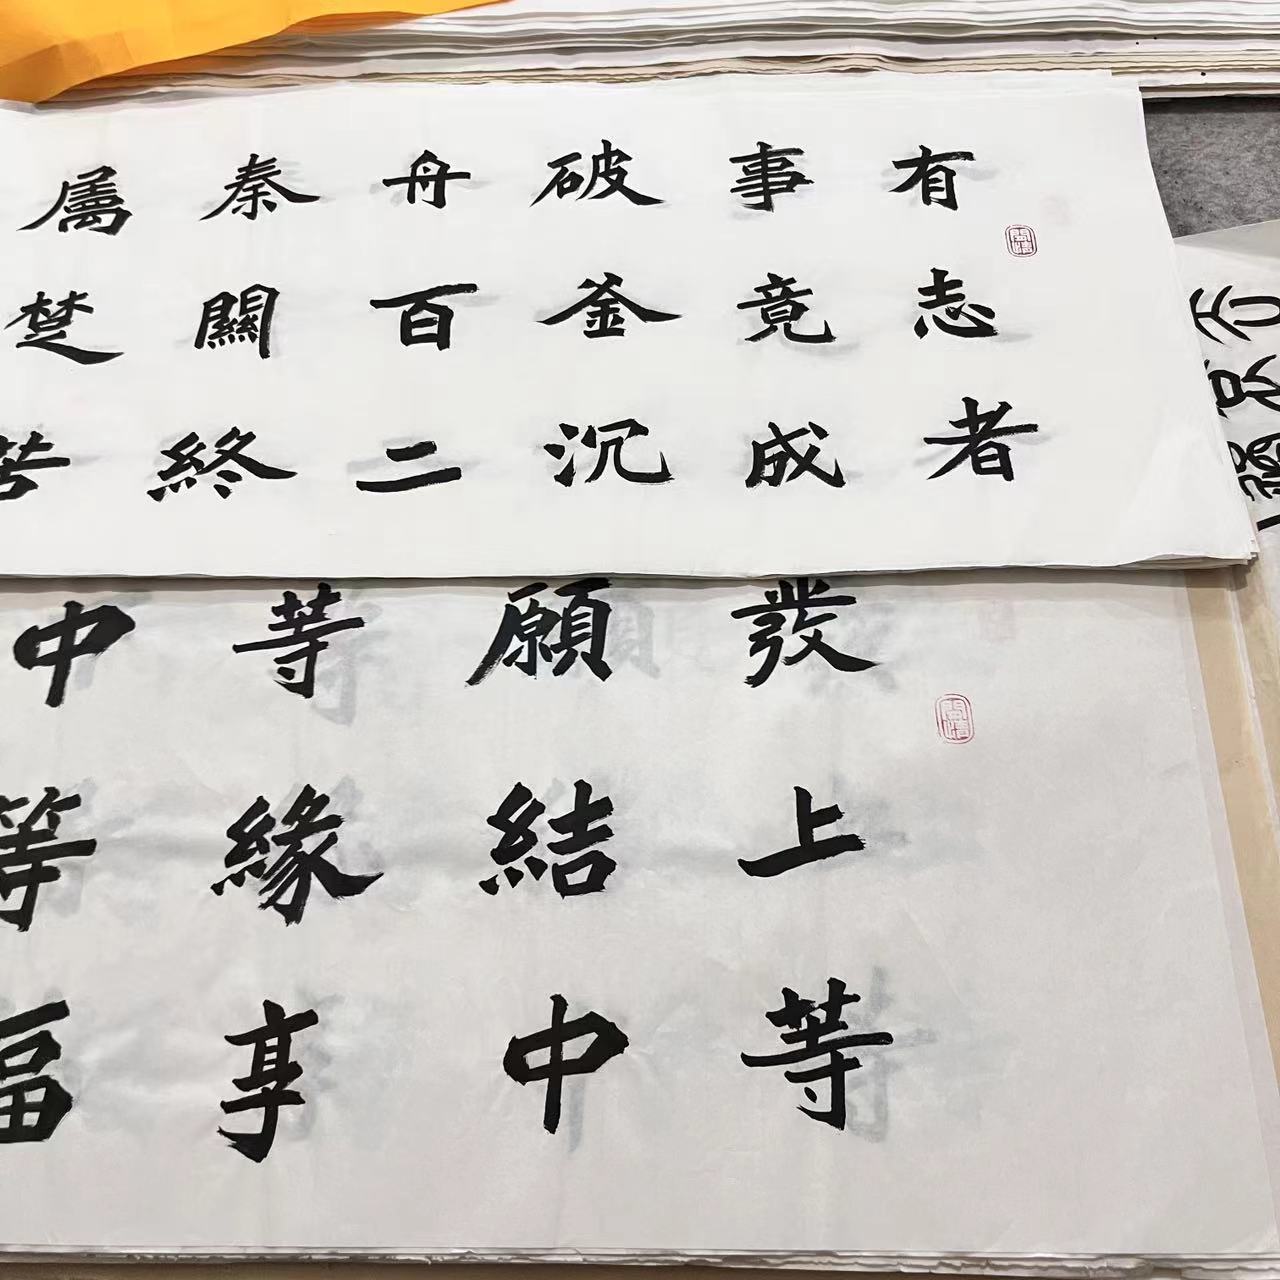 有志者
事竟成
破釜沉
舟百二
秦關終
屬楚
發上等
願結中
等緣享
中等福